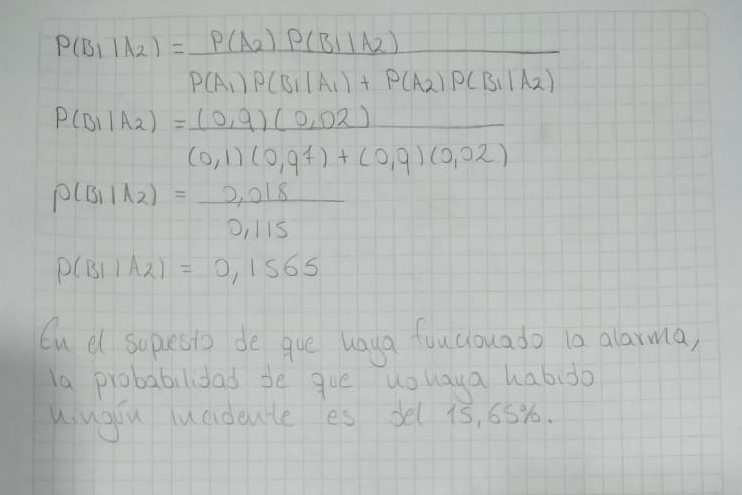 P(B1|A2) = P(A2) P(B1|A2)
P(A1)P(B1|A1) + P(A2)P(B1|A2)
P(B1|A2) = (0,9)(0,02)
(0,1)(0,97) + (0,9)(0,02)
P(B1|A2) = 0,018
0,115
P(B1|A2) = 0,1565
En el supuesto de que haya funcionado la alarma,
la probabilidad de que no haya habido
ningún incidente es del 15,65%.